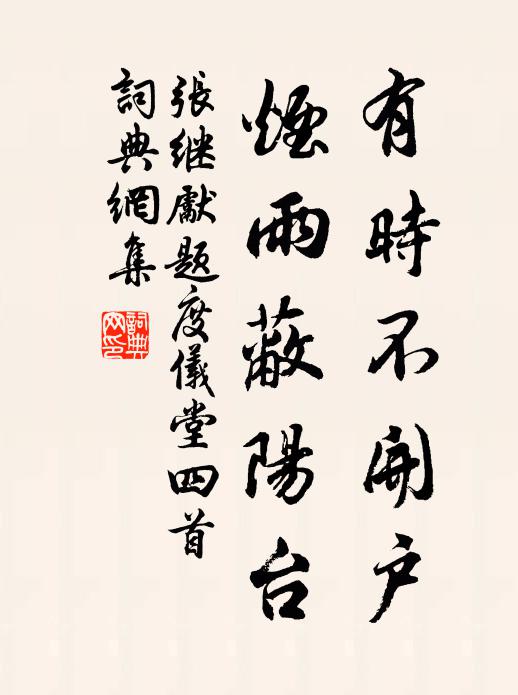 有時不開户
煙雨蔽陽台
張継獻題度儀堂四首
詞典網集
詞典网印